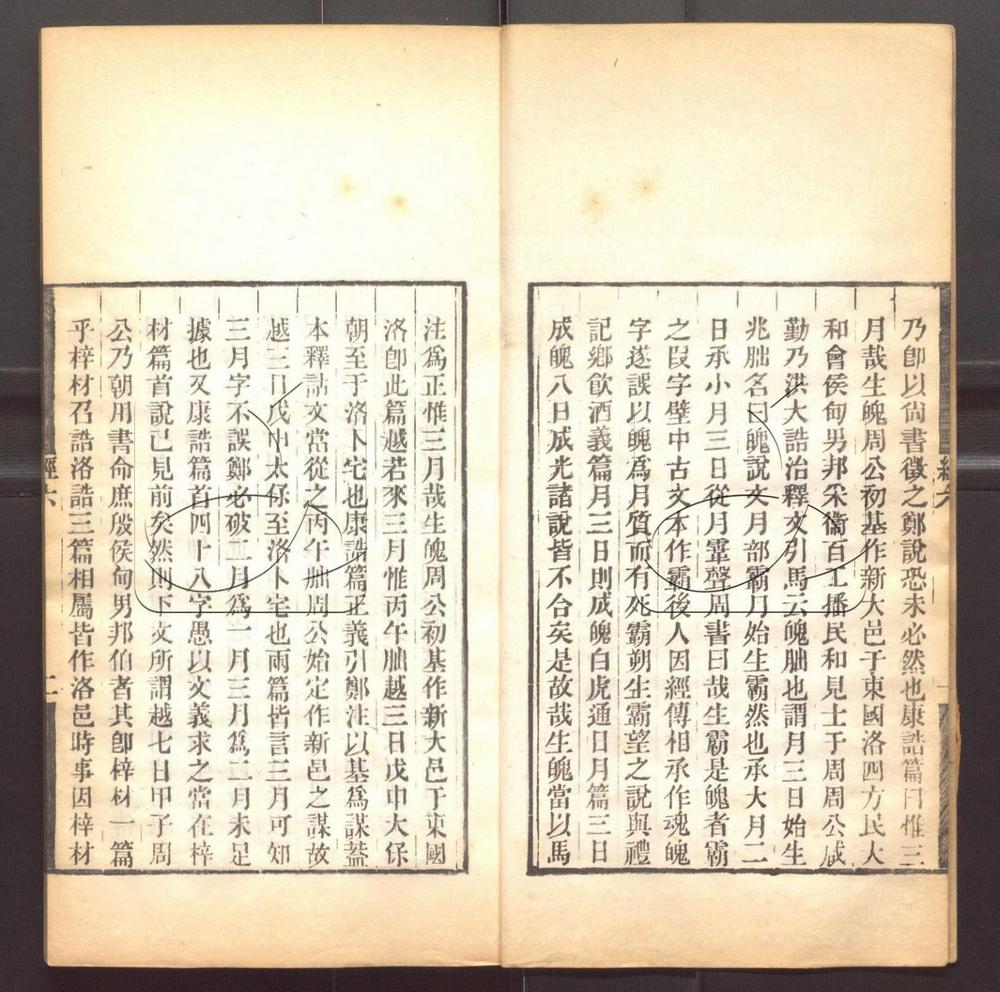 乃卽以尙書徵之鄭說恐未必然也康誥篇曰惟三
月哉生魄周公初基作新大邑于東國洛四方民大
和會侯甸男邦采衞百工播民和見士于周周公咸
勤乃洪大誥治釋文引馬云魄朏也謂月三日始生
兆朏名曰魄說文月部霸月始生霸然也承大月二
日承小月三日從月䨣聲周書曰哉生霸是魄者霸
之叚字壁中古文本作霸後人因經傳相承作魂魄
字遂誤以魄爲月質而有死霸朔生霸望之說與禮
記鄉飮酒義篇月三日則成魄白虎通日月篇三日
成魄八日成光諸說皆不合矣是故哉生魄當以馬
經六
一
注爲正惟三月哉生魄周公初基作新大邑于東國
洛卽此篇越若來三月惟丙午朏越三日戊申大保
朝至于洛卜宅也康誥篇正義引鄭注以基爲謀蓋
本釋詁文當從之丙午朏周公始定作新邑之謀故
越三日戊申太保至洛卜宅也兩篇皆言三月可知
三月字不誤鄭必破二月爲一月三月爲二月未足
據也又康誥篇首四十八字愚以文義求之當在梓
材篇首說已見前矣然則下文所謂越七日甲子周
公乃朝用書命庶殷侯甸男邦伯者其卽梓材一篇
乎梓材召誥洛誥三篇相屬皆作洛邑時事因梓材
經六
二